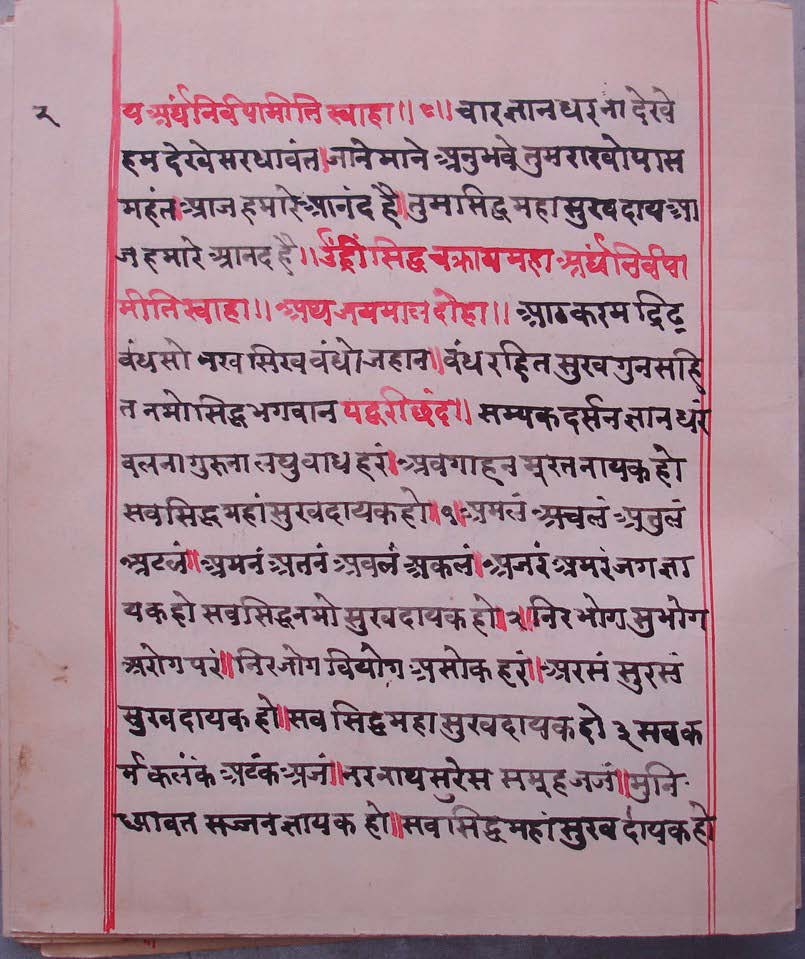 २
य अर्घंनिर्वपामीति स्वाहा।। ९।। चार ज्ञान धर ना देखे
हम देखे सरधावंत॥जाने माने अनुभवे तुम राखो पास
महंत॥आज हमारे आनंद है॥तुम सिद्ध महा सुखदाय आ
ज हमारे आनद है।। उँह्रीं सिद्ध चक्राय महा अर्घंनिर्वपा
मीति स्वाहा।। अथ जयमाल दोहा।। आठ करम द्रिढ
बंध सो नख सिख बंधो जहान॥बंध रहित सुख गुन सहि
त नमो सिद्ध भगवान पद्धरी छंद।। सम्यक दर्सन ज्ञान धरं
वलना गुरुना लघु वाध हरं॥अवगाहन मूरत नायक हो
सव सिद्ध महां सुखदायक हो॥१॥अमलं अचलं अतुलं
अटलं॥अमनं अतनं अवलं अकलं॥अजरं अमरं जग ज्ञा
यक हो सव सिद्ध नमो सुखदायक हो॥२॥निर भोग सुभोग
अरोग परं॥निर जोग वियोग असोक हरं॥अरसं सुरसं
सुखदायक हो॥सव सिद्ध महा सुखदायक हो ३ सव क
र्म कलंक अटंक अजं॥नरनाथ सुरेस समूह जजं॥मुनि
ध्यावत सज्जन ज्ञायक हो॥सव सिद्ध महां सुख दायक हो